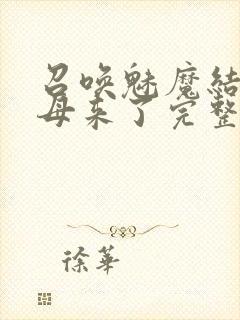 召唤魅魔结
母来了完整
徐華